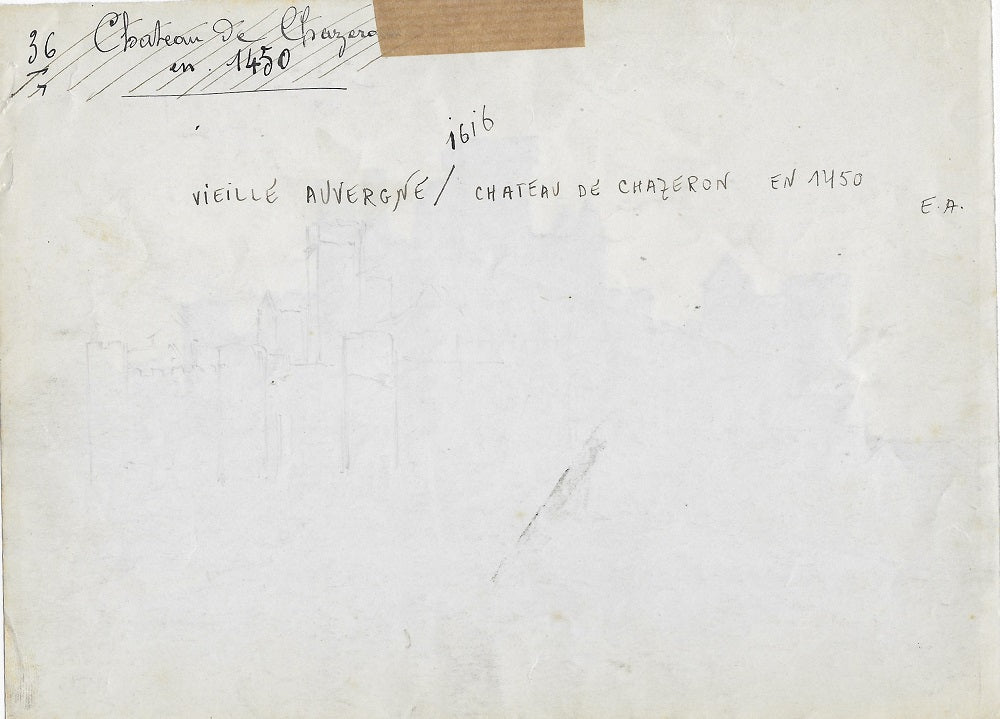 36 Chateau de
en. 1450
1616
VIEILLE AUVERGNE / CHATEAU DE CHAZERON EN 1450
E.A.